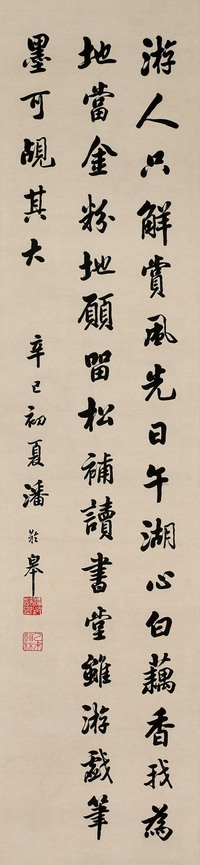 游人只解賞風先日午湖心白藕香我為
地當金粉地願留松補讀書堂雖游戲筆
墨可覘其大
辛巳初夏潘齡皋